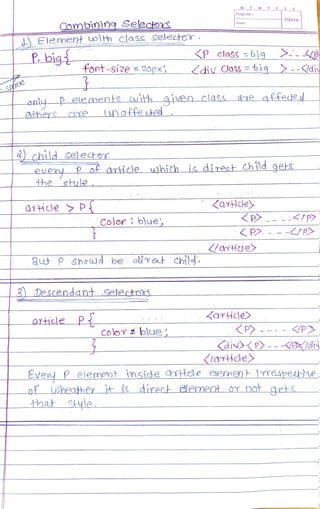 Combining Selectors
1) Element with class selector.
P. big{ <P class = big >---</P
font-size = 20px; <div class = big >--</div
}
space
only P elements with given class are affected
others are unaffected.
2) child selector
every P of article which is direct child gets
the style.
article > P{ <article>
color : blue; <P>----</P>
} <P>---</P>
</article>
But P should be direct child.
3) Descendant selectors
article P{ <article>
color = blue; <P>----</P>
} <div><P>---</P></div
</article>
Every P element inside article element irrespective
of wheather it is direct element or not gets
that style.